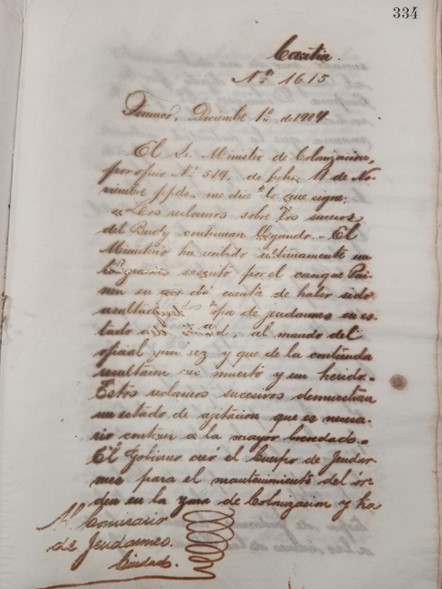 334
Nº 1615
Temuco, Diciembre 1º de 1914
El Sr. Ministro de Colonización,
por oficio Nº 519, de fecha 11 de No-
viembre ppdo. me dice lo que sigue:
"Los reclamos sobre los sucesos
del Budy continuan llegando.- El
Ministerio ha recibido ultimamente un
telegrama suscrito por el cacique Pai-
nen en que dá cuenta de haber sido
asaltado por tropa de jendarmes en es-
tado de, al mando del
oficial y que de la contienda
resultaron un muerto y un herido.-
Estos reclamos sucesivos demuestran
un estado de ajitacion que es necesa-
rio contener a la mayor brevedad.-
El Gobierno creó el Cuerpo de Jendar-
mes para el mantenimiento del or-
den en la zona de Colonizacion y ha
Al Comisario
de Jendarmes
Ciudad.